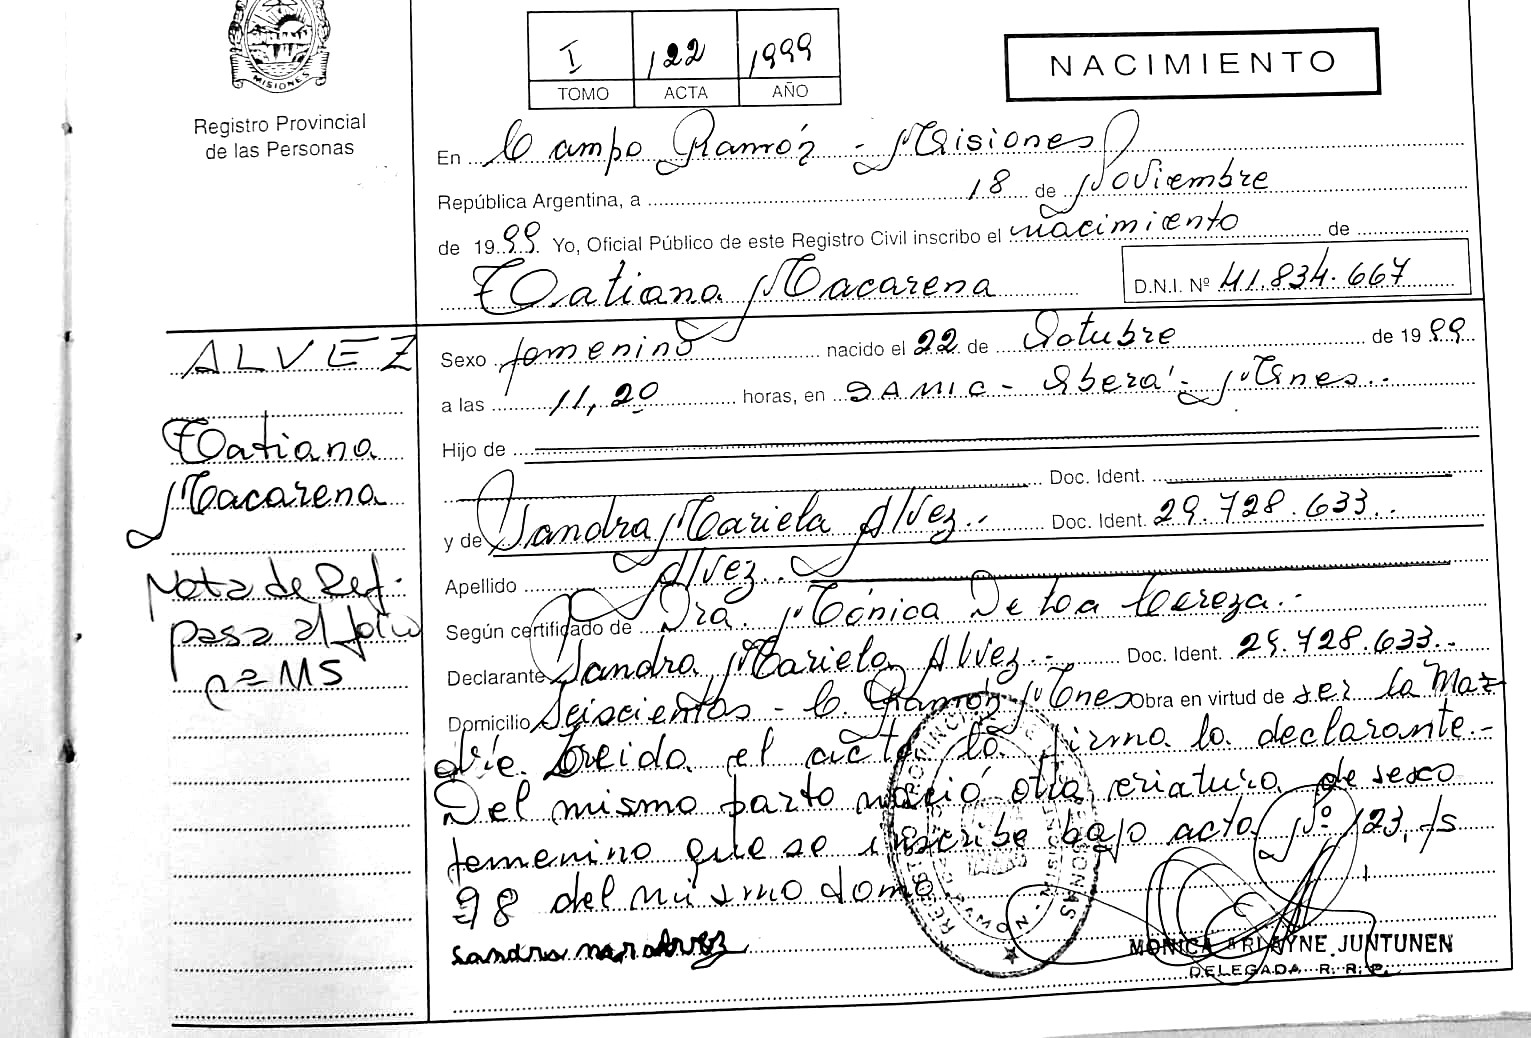 MISIONES
Registro Provincial
de las Personas
I 122 1999
TOMO ACTA AÑO
NACIMIENTO
En Campo Ramón - Misiones
República Argentina, a 18 de Noviembre
de 1999 Yo, Oficial Público de este Registro Civil inscribo el nacimiento de
Tatiana Macarena D.N.I. Nº 41.834.667
ALVEZ
Tatiana
Macarena
Nota de Ref.
pasa al folio
nº MS
Sexo femenino nacido el 22 de Octubre de 1999
a las 11,20 horas, en SAMIC - Oberá - Mnes..
Hijo de
Doc. Ident.
y de Sandra Mariela Alvez.. Doc. Ident. 29.728.633..
Apellido Alvez..
Según certificado de Dra. Mónica De Loa Cereza.-
Declarante Sandra Mariela Alvez.- Doc. Ident. 29.728.633..
Domicilio Seiscientos - C. Ramón Mnes Obra en virtud de ser la Ma
dre. Leida el acta la firma la declarante.-
Del mismo parto nació otra criatura de sexo
femenino que se inscribe bajo acta Nº 123, fs
98 del mismo tomo.
Sandra
MONICA ARLAYNE JUNTUNEN
DELEGADA R. R. P.